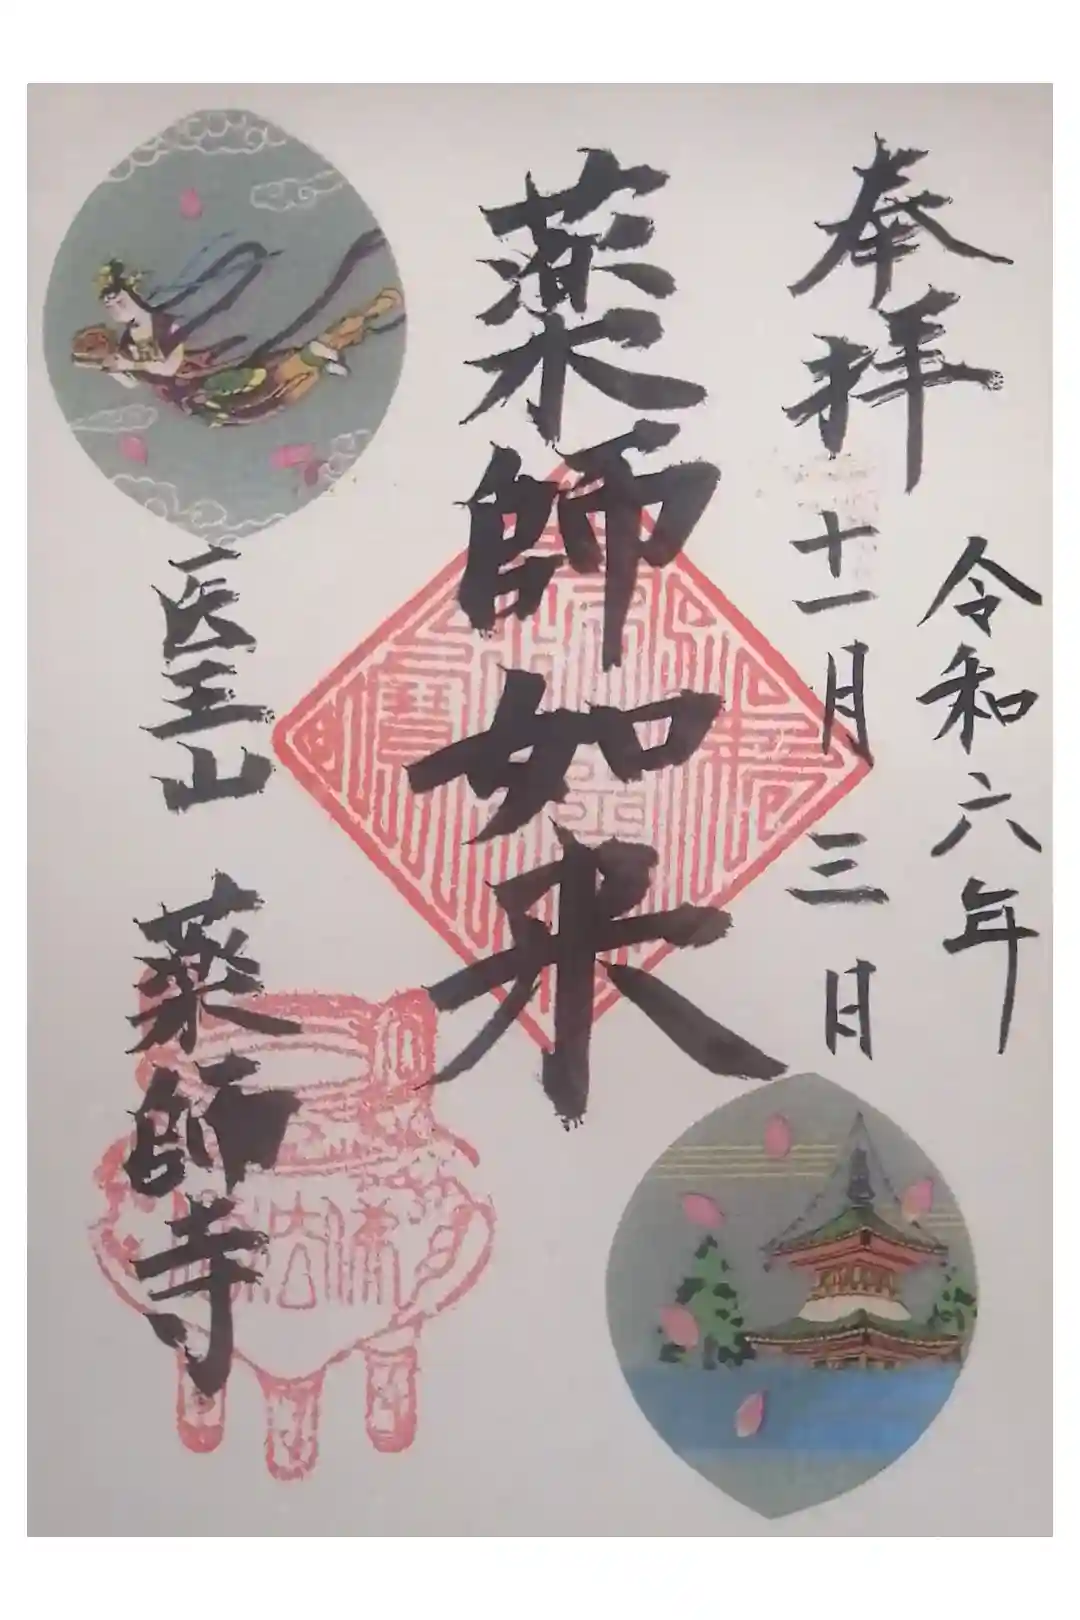 奉拝
令和六年
十一月三日
薬師如来
医王山
薬師寺